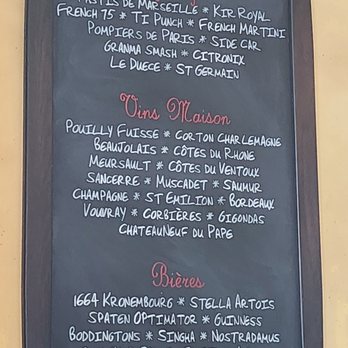 PASTIS DE MARSEILLE * KIR ROYAL
FRENCH 75 * TI PUNCH * FRENCH MARTINI
POMPIERS DE PARIS * SIDE CAR
GRANMA SMASH * CITRONIX
LE DUECE * ST GERMAIN
Vins Maison
POUILLY FUISSE * CORTON CHARLEMAGNE
BEAUJOLAIS * CÔTES DU RHONE
MEURSAULT * CÔTES DU VENTOUX
SANCERRE * MUSCADET * SAUMUR
CHAMPAGNE * ST EMILION * BORDEAUX
VOUVRAY * CORBIÈRES * GIGONDAS
CHATEAUNEUF DU PAPE
Bières
1664 KRONEMBOURG * STELLA ARTOIS
SPATEN OPTIMATOR * GUINNESS
BODDINGTONS * SINGHA * NOSTRADAMUS